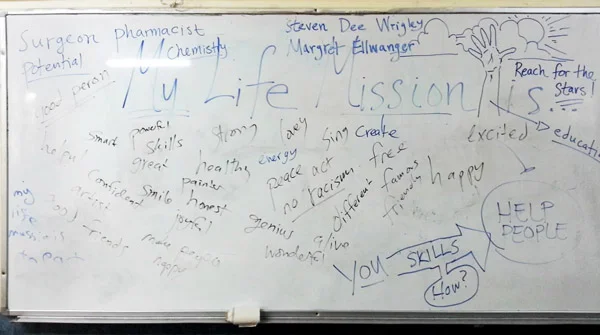 Surgeon pharmacist
Chemistry
Potential
Steven Dee Wrigley
Margret Ellwanger
Reach for the
Stars!
My Life Mission is...
good person
helpful
Smart
powerful
Skills
great
strong
healthy
energy
sing
Create
peace act
no racism
free
excited
education
Confident
artist
Smile
painter
honest
joyful
genius
Different
famous
happy
good
friends
make people
happy
wonderful
alive
my
life
YOU
SKILLS
HOW?
HELP
PEOPLE